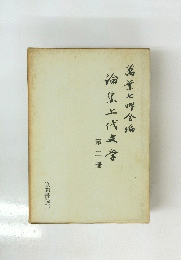 萬葉七曜会編
論集上代文学
第二冊
笠間書院